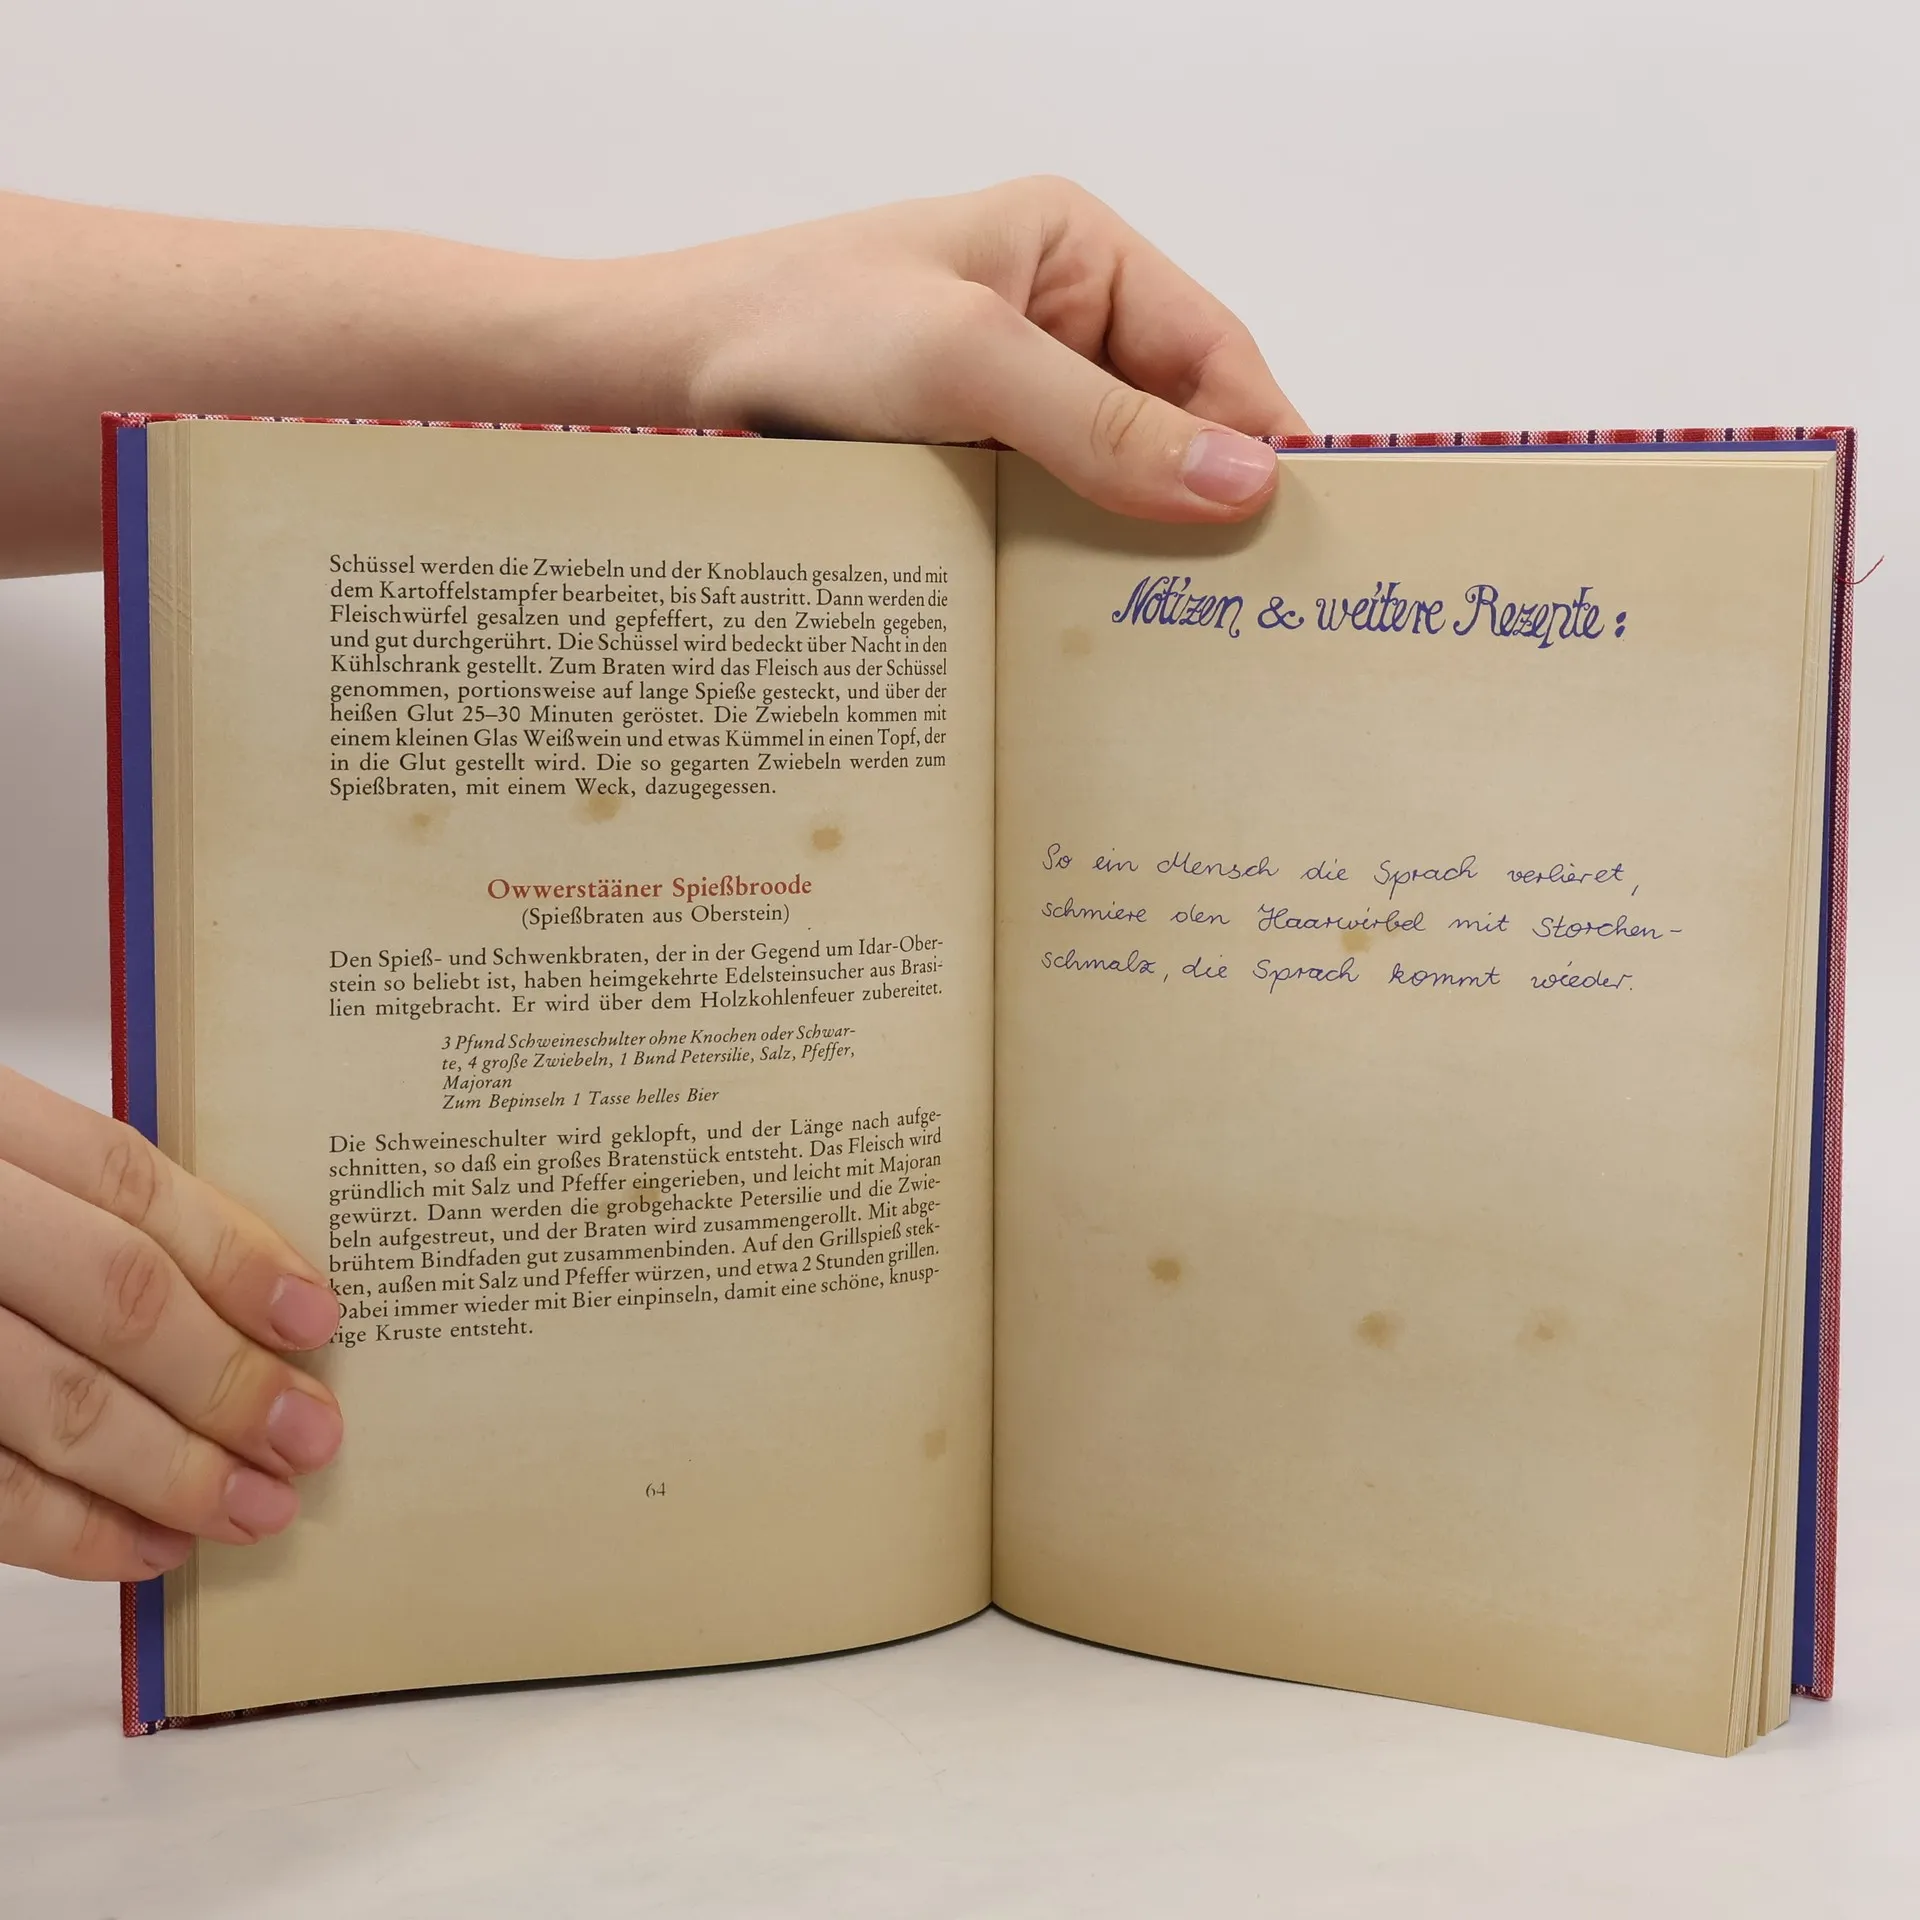 Schüssel werden die Zwiebeln und der Knoblauch gesalzen, und mit
dem Kartoffelstampfer bearbeitet, bis Saft austritt. Dann werden die
Fleischwürfel gesalzen und gepfeffert, zu den Zwiebeln gegeben,
und gut durchgerührt. Die Schüssel wird bedeckt über Nacht in den
Kühlschrank gestellt. Zum Braten wird das Fleisch aus der Schüssel
genommen, portionsweise auf lange Spieße gesteckt, und über der
heißen Glut 25–30 Minuten geröstet. Die Zwiebeln kommen mit
einem kleinen Glas Weißwein und etwas Kümmel in einen Topf, der
in die Glut gestellt wird. Die so gegarten Zwiebeln werden zum
Spießbraten, mit einem Weck, dazugegessen.
Owwerstääner Spießbroode
(Spießbraten aus Oberstein)
Den Spieß- und Schwenkbraten, der in der Gegend um Idar-Ober-
stein so beliebt ist, haben heimgekehrte Edelsteinsucher aus Brasi-
lien mitgebracht. Er wird über dem Holzkohlenfeuer zubereitet.
3 Pfund Schweineschulter ohne Knochen oder Schwar-
te, 4 große Zwiebeln, 1 Bund Petersilie, Salz, Pfeffer,
Majoran
Zum Bepinseln 1 Tasse helles Bier
Die Schweineschulter wird geklopft, und der Länge nach aufge-
schnitten, so daß ein großes Bratenstück entsteht. Das Fleisch wird
gründlich mit Salz und Pfeffer eingerieben, und leicht mit Majoran
gewürzt. Dann werden die grobgehackte Petersilie und die Zwie-
beln aufgestreut, und der Braten wird zusammengerollt. Mit abge-
brühtem Bindfaden gut zusammenbinden. Auf den Grillspieß stek-
ken, außen mit Salz und Pfeffer würzen, und etwa 2 Stunden grillen.
Dabei immer wieder mit Bier einpinseln, damit eine schöne, knusp-
rige Kruste entsteht.
64
Notizen & weitere Rezepte:
So ein Mensch die Sprach verlieret,
schmiere den Haarwirbel mit Storchen-
schmalz, die Sprach kommt wieder.